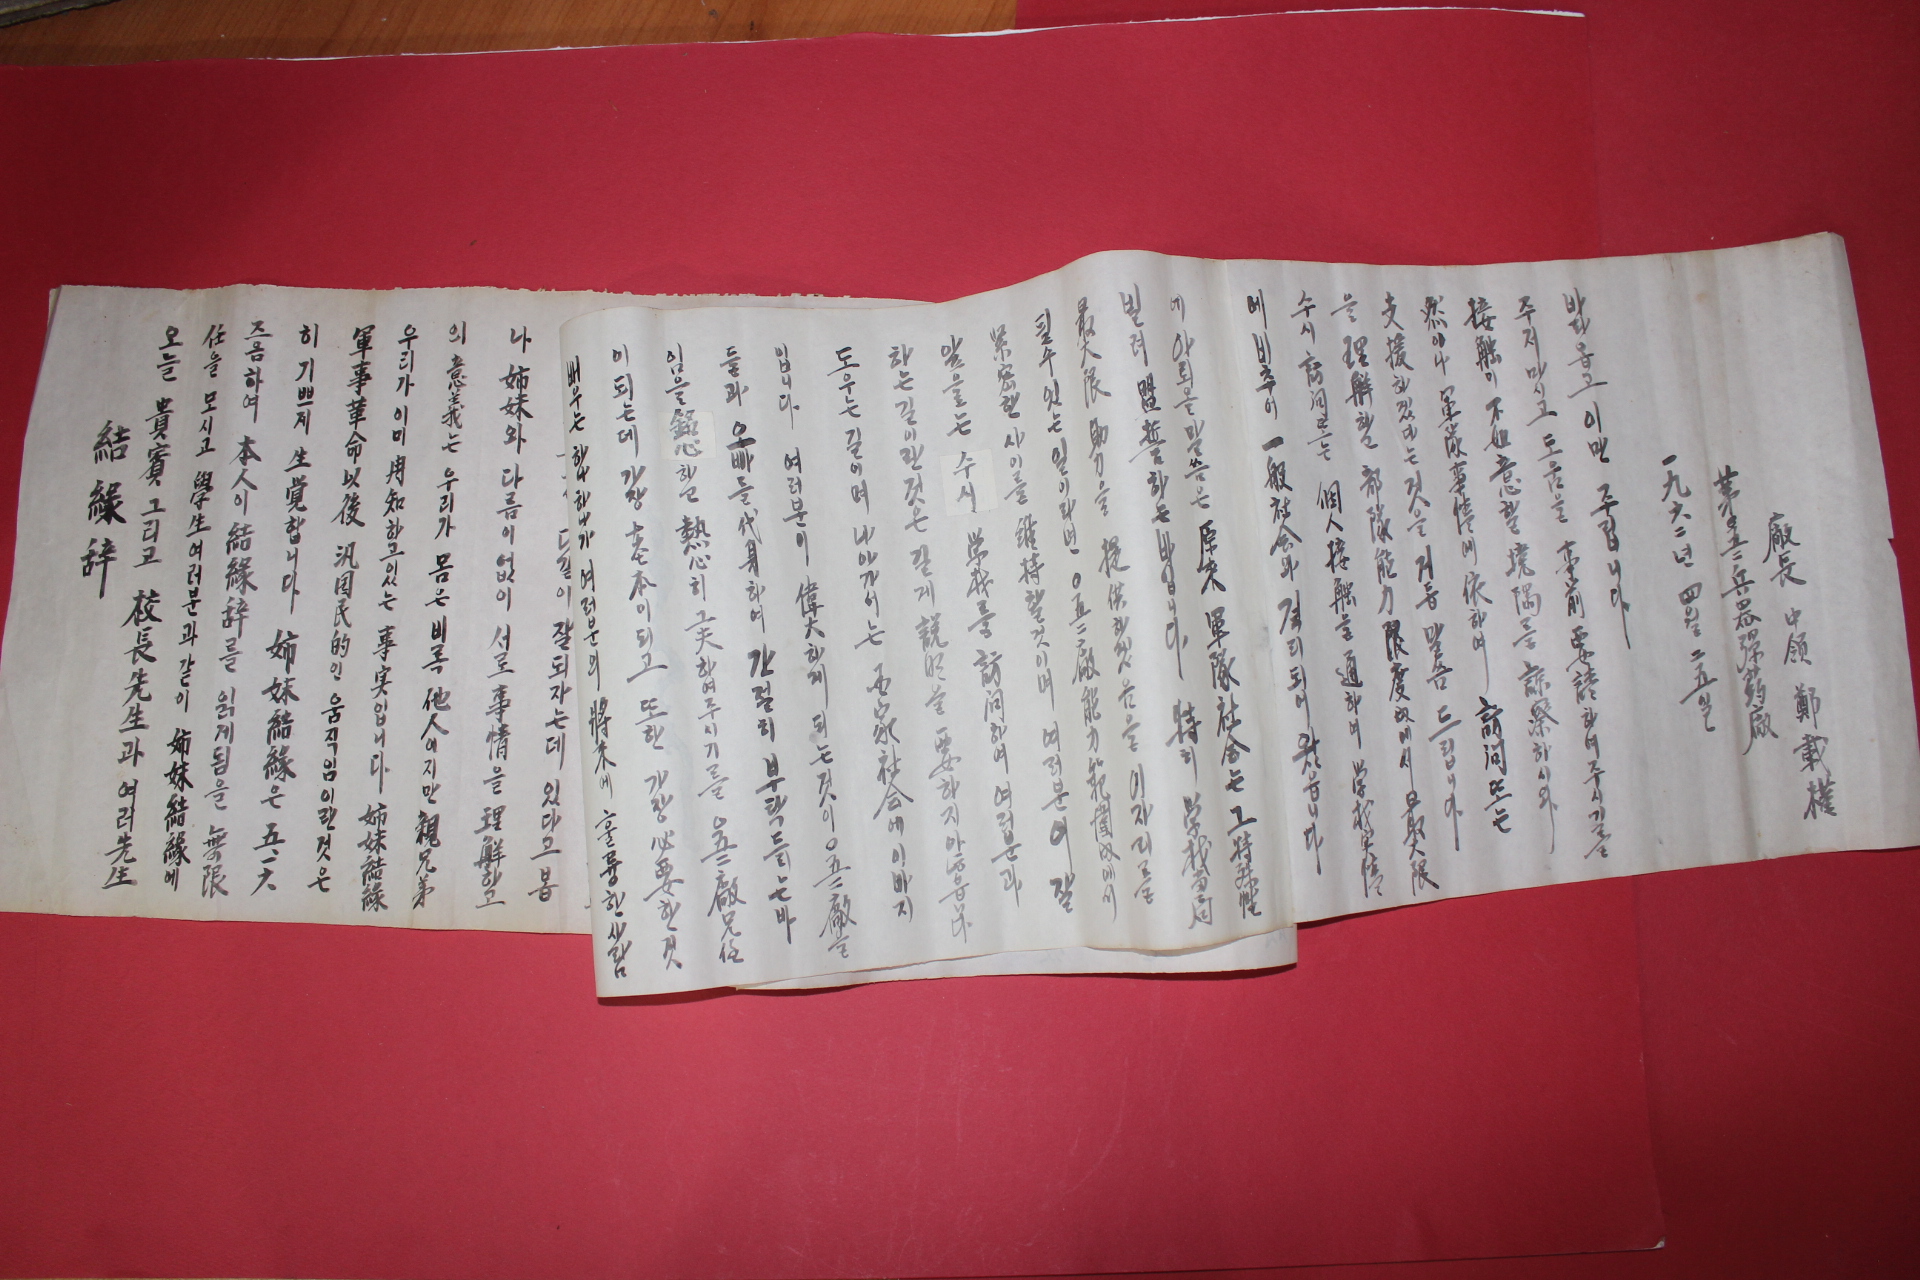 結緣辞
오늘 貴賓 그리고 校長先生과 여러先生
任을 모시고 學生여러분과 같이 姉妹結緣에
즈음하여 本人이 結緣辞를 읽게됨을 無限
히 기쁘게 生覚합니다 姉妹結緣은 五.一六
軍事革命以後 汎国民的인 움직임이란것은
우리가 이미 周知하고있는 事実입니다 姉妹結緣
의 意義는 우리가 몸은 비록 他人이지만 親兄弟
나 姉妹와 다름이없이 서로 事情을 理解하고
잘되자는데 있다고 봄
배우는 여러분의 將来에 훌륭한사람
이 되는데 가장 基本이 되고 또한 가장 必要한것
임을 銘心하고 熱心히 工夫하여주시기를 五二廠兄任
들과 오빠들 代身하여 간절히 부탁드리는바
입니다 여러분이 偉大하게 되는것이 ○五二廠을
도우는 길이며 나아가서는 国家社会에 이바지
하는길이란것은 길게 説明을 要하지아니합니다
앞으로는 수시 学校를 訪問하여 여러분과
緊密한 사이를 維持할것이며 여러분이 잘
될수있는일이라면 ○五二廠能力範圍內에서
最大限 助力을 提供하겠음을 이자리를
빌려 盟誓하는바입니다 特히 学校当局
에 아뢰올말씀은 原来 軍隊社会는 그特殊性
에 비추어 一般社会와 격리되어 왔읍니다
수시 訪問또는 個人接触을 通하여 学校事情
을 理解할 部隊能力限度內에서 最大限
支援하겠다는것을 거듭 말씀 드립니다
然이나 軍隊事情에 依하여 訪問또는
接触이 不如意할 境遇를 諒察하시와
주저마시고 도움을 事前要請하여주시기를
바라옵고 이만 주립니다
一九六二년 四월 二五일
第五二兵器弾薬廠
廠長 中領 鄭載權